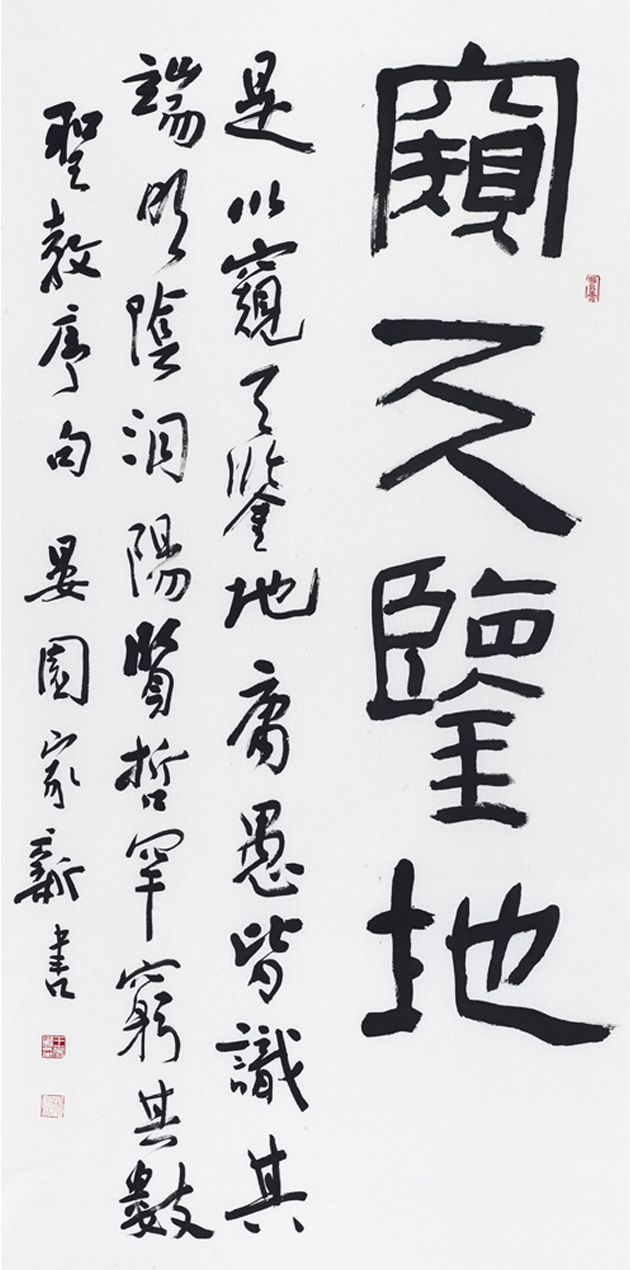 窺天鑒地
是以窺天鑒地庸愚皆識其
端明陰洞陽賢哲罕窮其數
聖教序句 晏園家新書